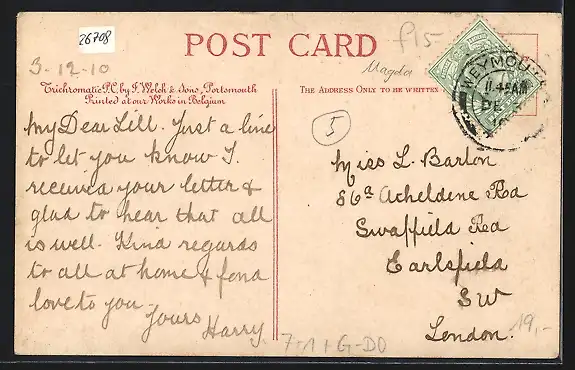 26708
POST CARD
£15
3-12-10
Magda
Trichromatic P.C. by J. Welch & Sons, Portsmouth
Printed at our Works in Belgium
THE ADDRESS ONLY TO BE WRITTEN
WEYMOUTH
11.45AM
DE
10
5
My Dear Lill. Just a line
to let you know I.
received your letter &
glad to hear that all
is well. Kind regards
to all at home & fond
love to you
Yours
Harry
Miss L. Barton
86a Acheldene Rd
Swaffield Rd
Earlsfield
SW
London.
19,-